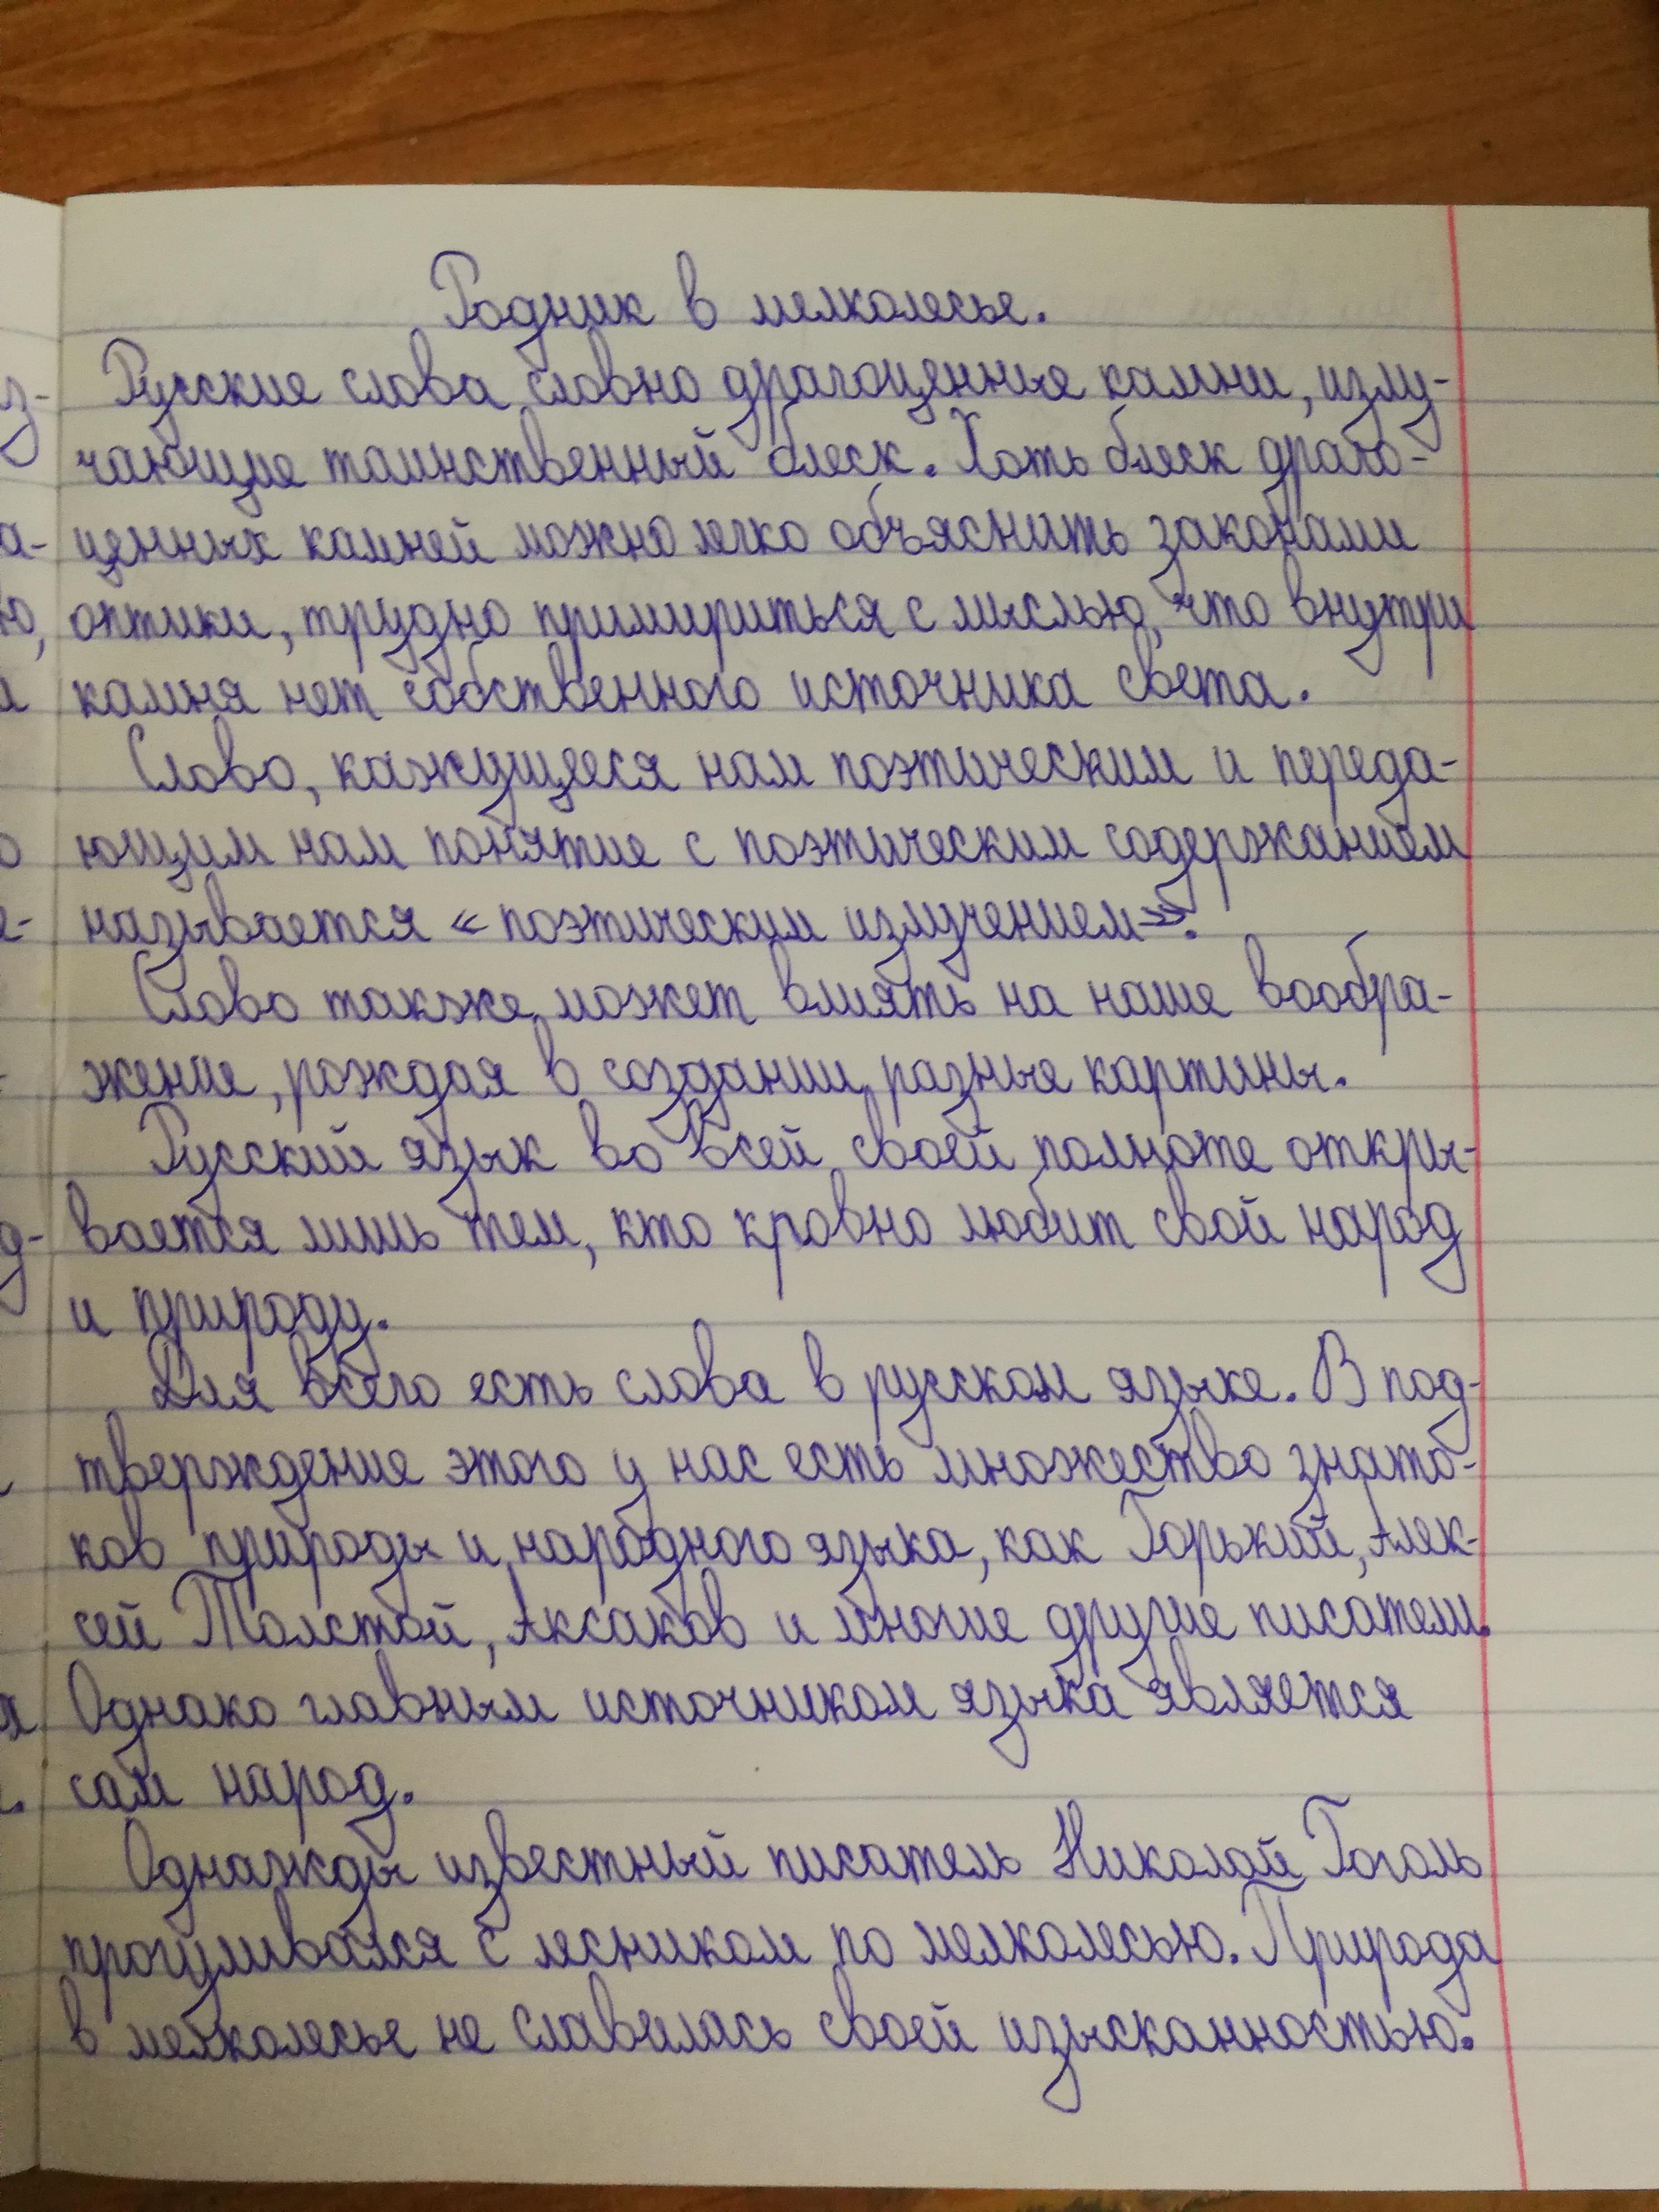 Родник в мелколесье.
Русские слова словно драгоценные камни, излу-
чающие таинственный блеск. Хоть блеск драго-
ценных камней можно легко объяснить законами
оптики, трудно примириться с мыслью, что внутри
камня нет собственного источника света.
Слово, кажущееся нам поэтическим и переда-
ющим нам понятие с поэтическим содержанием
называется «поэтическим излучением».
Слово также может влиять на наше вообра-
жение, рождая в создании разные картины.
Русский язык во всей своей полноте откры-
вается лишь тем, кто кровно любит свой народ
и природу.
Для всего есть слова в русском языке. В под-
тверждение этого у нас есть множество знато-
ков природы и народного языка, как Горький, Алек-
сей Толстой, Аксаков и многие другие писатели.
Однако главным источником языка является
сам народ.
Однажды известный писатель Николай Гоголь
прогуливался с лесником по мелколесью. Природа
в мелколесье не славилась своей изысканностью.